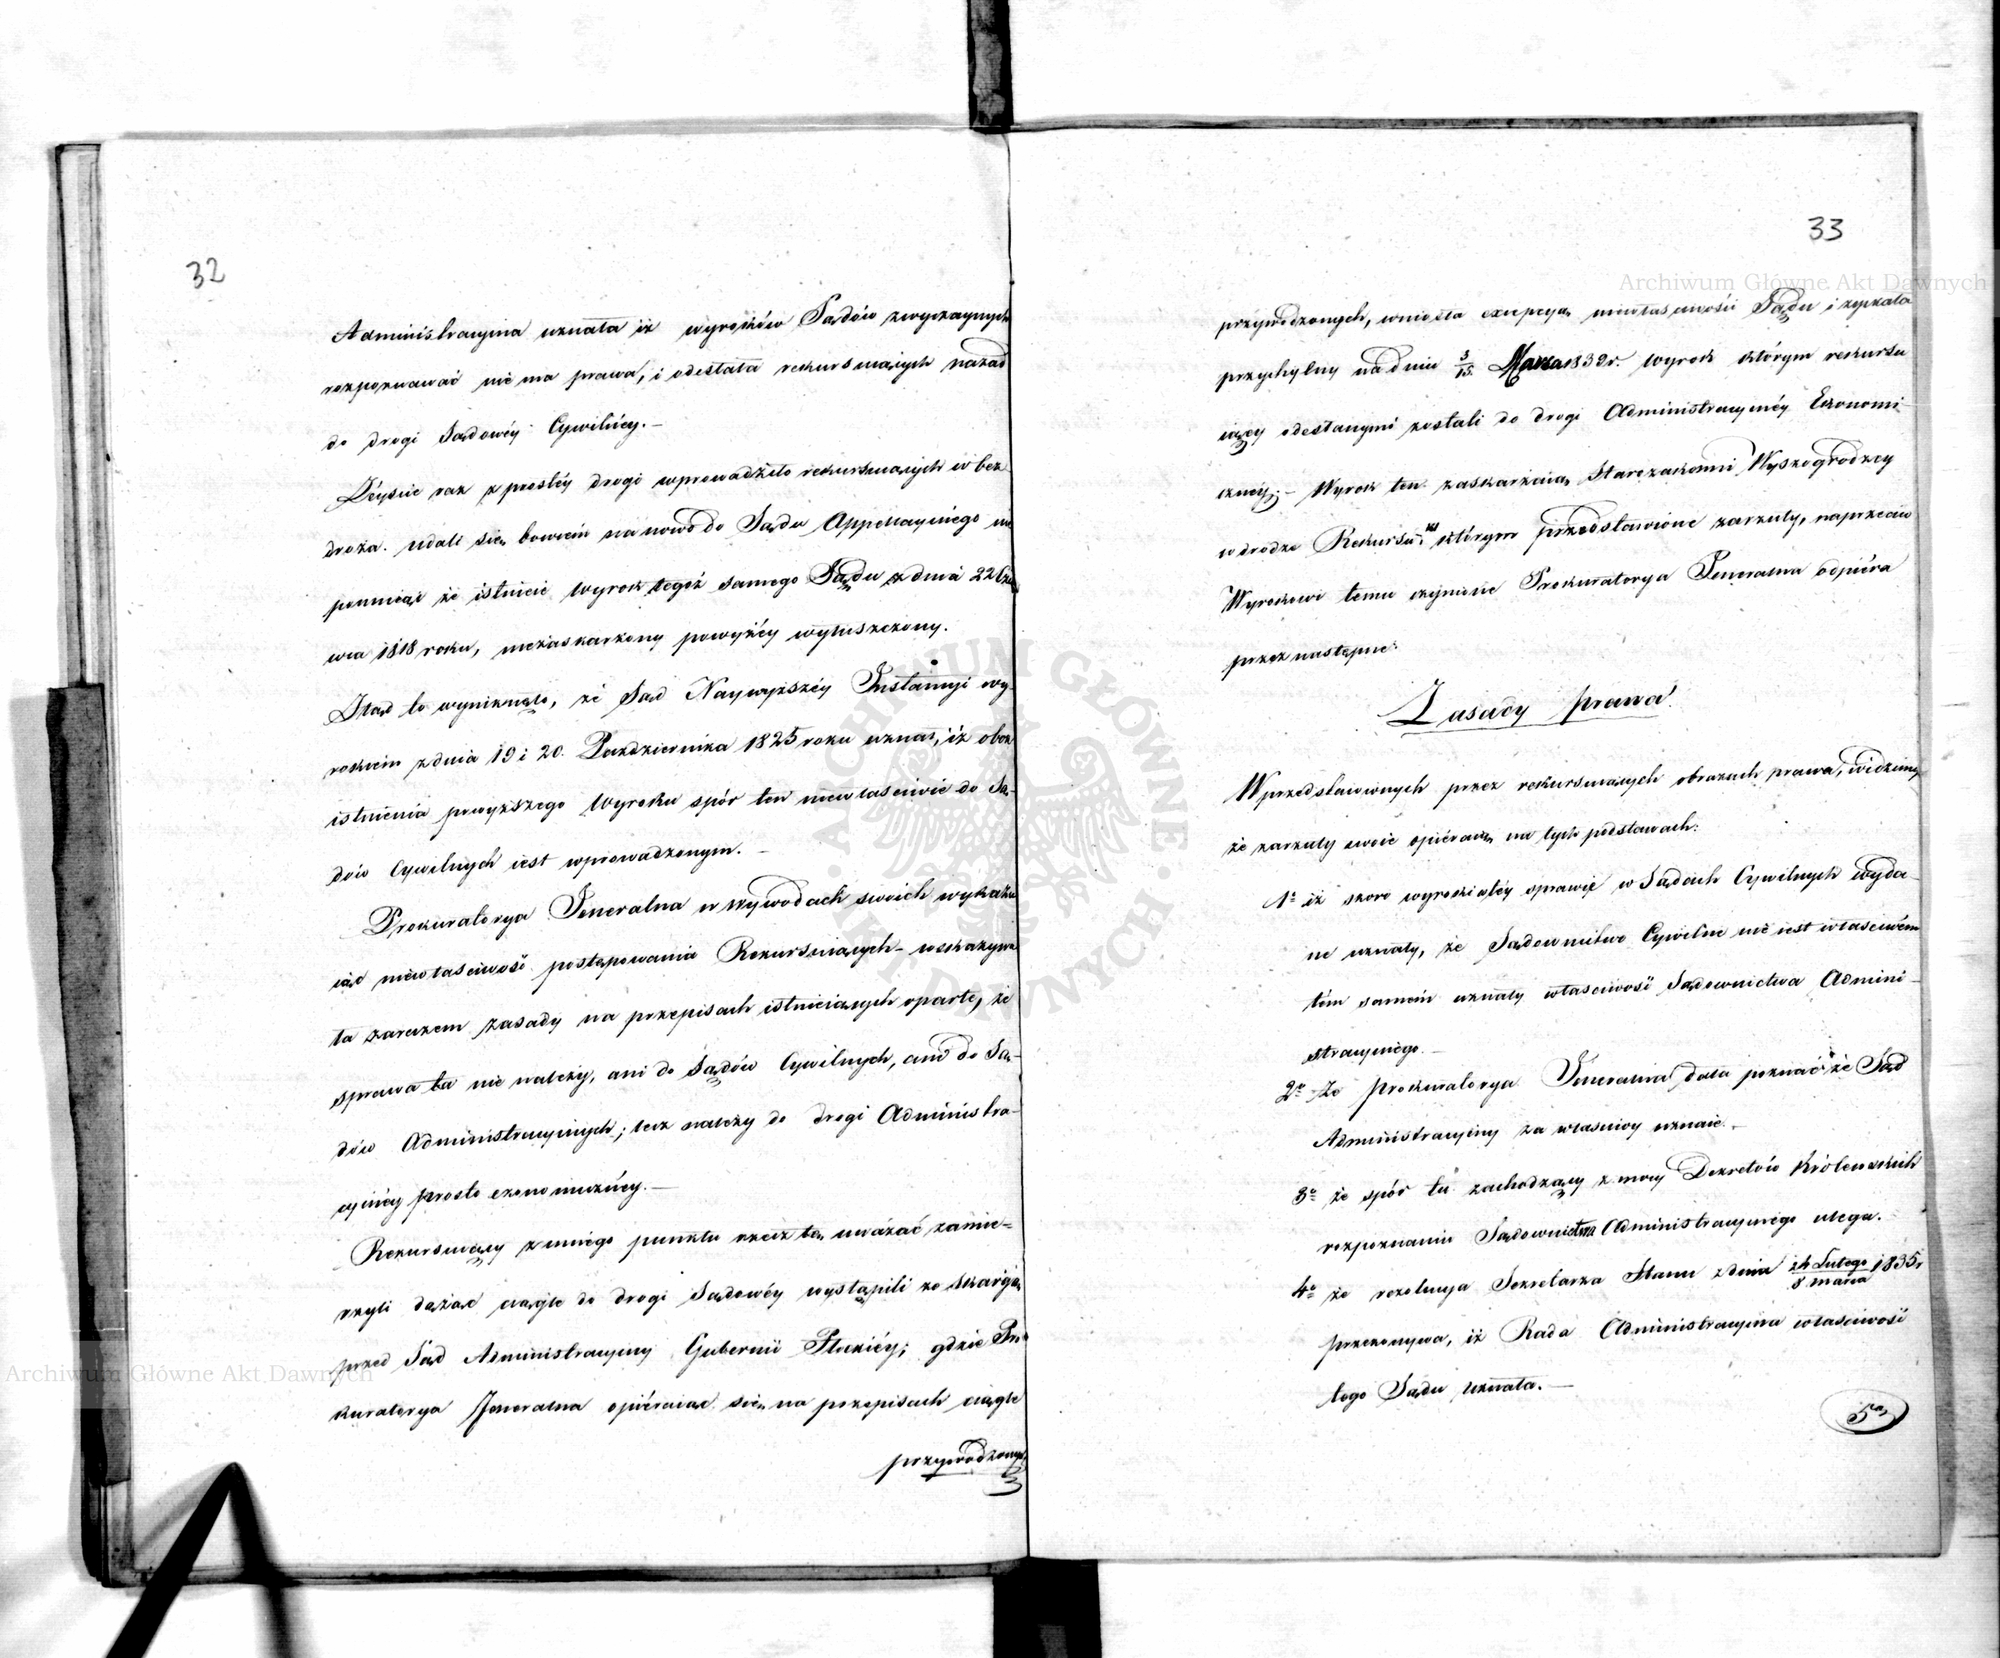 32
Administracyina uznała iż wyroków Sądów zwyczaynych
rozpoznawać nie ma prawa, i odesłała rekursuiących nazad
do drogi Sądowéy Cywilnéy. —
Zeyście raz z prostéy drogi wprowadziło rekursuiących w bez-
droża. udali się bowiem na nowo do Sądu Appellacyinego nie
pomnąc że istnieie wyrok tegoż samego Sądu z dnia 22 Czer
wca 1818 roku, niezaskarżony powyżéy wyłuszczony.
Ztąd to wyniknęło, że Sąd Naywyższéy Instancyi wy-
rokiem z dnia 19 i 20. Października 1825 roku uznał, iż obok
istnienia powyższego Wyroku spór ten niewłaściwie do Są-
dów Cywilnych iest wprowadzonym. —
Prokuratorya Jeneralna w wywodach swoich wykazu
iąc niewłaściwość postępowania Rekursuiących — wskazywa
ła zarazem zasady na przepisach istnieiących oparte, że
sprawa ta nie należy, ani do Sądów Cywilnych, ani do Są-
dów Administracyinych; lecz należy do drogi Administra-
cyinéy prosto ekonomicznéy. —
Rekursuiący z innego punktu rzecz tę uważać zamie-
rzyli dążąc ciągle do drogi Sądowéy wystąpili ze skargą
przed Sąd Administracyiny Gubernii Płockiéy; gdzie Pro
kuratorya Jeneralna opiéraiąc się na przepisach ciągle
przywodzonych
3
33
przywodzonych, wniosła excepcyą niewłaściwości Sądu i zyskała
przychylny na dniu 3/15. Marca 1839 r. wyrok którym rekursu
iący odesłanymi zostali do drogi Administracyinéy Ekonomi-
cznéy. — Wyrok ten zaskarżaią Starozakonni Wyszogrodzcy
w drodze Rekursu, w którym przedstawione zarzuty, naprzeciw
Wyrokowi temu czynione Prokuratorya Jeneralna odpiéra
przez następne:
Zasady prawa.
W przedstawionych przez rekursuiących obrazach prawa, widzimy
że zarzuty swoie opiéraią na tych podstawach:
1º iż skoro wyroki w téy sprawie w Sądach Cywilnych wyda-
ne uznały, że Sądownictwo Cywilne nie iest właściwém
tém samém uznały właściwość Sądownictwa Admini-
stracyinego. —
2º Że Prokuratorya Jeneralna dała poznać że Sąd
Administracyiny za właściwy uznaie. —
3º że spór tu zachodzący z mocy Dekretów Królewskich
rozpoznaniu Sądownictwa Administracyinego ulega.
4º że rezolucya Sekretarza Stanu z dnia 24 Lutego / 8 marca 1835 r
przekonywa, iż Rada Administracyina właściwość
tego Sądu uznała. —
5º
Archiwum Główne Akt Dawnych
Archiwum Główne Akt Dawnych
ARCHIWUM GŁÓWNE AKT DAWNYCH